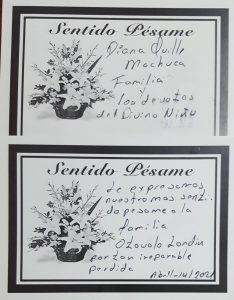 Sentido Pésame
Diana Quille
Machuca
Familia
y
los devotos
del Divino Niño
Sentido Pésame
de expresamos
nuestro mas senti..
do pesame a la
familia
Ozavala Londiu
por tan ireparable
perdida
Abril-14/2021